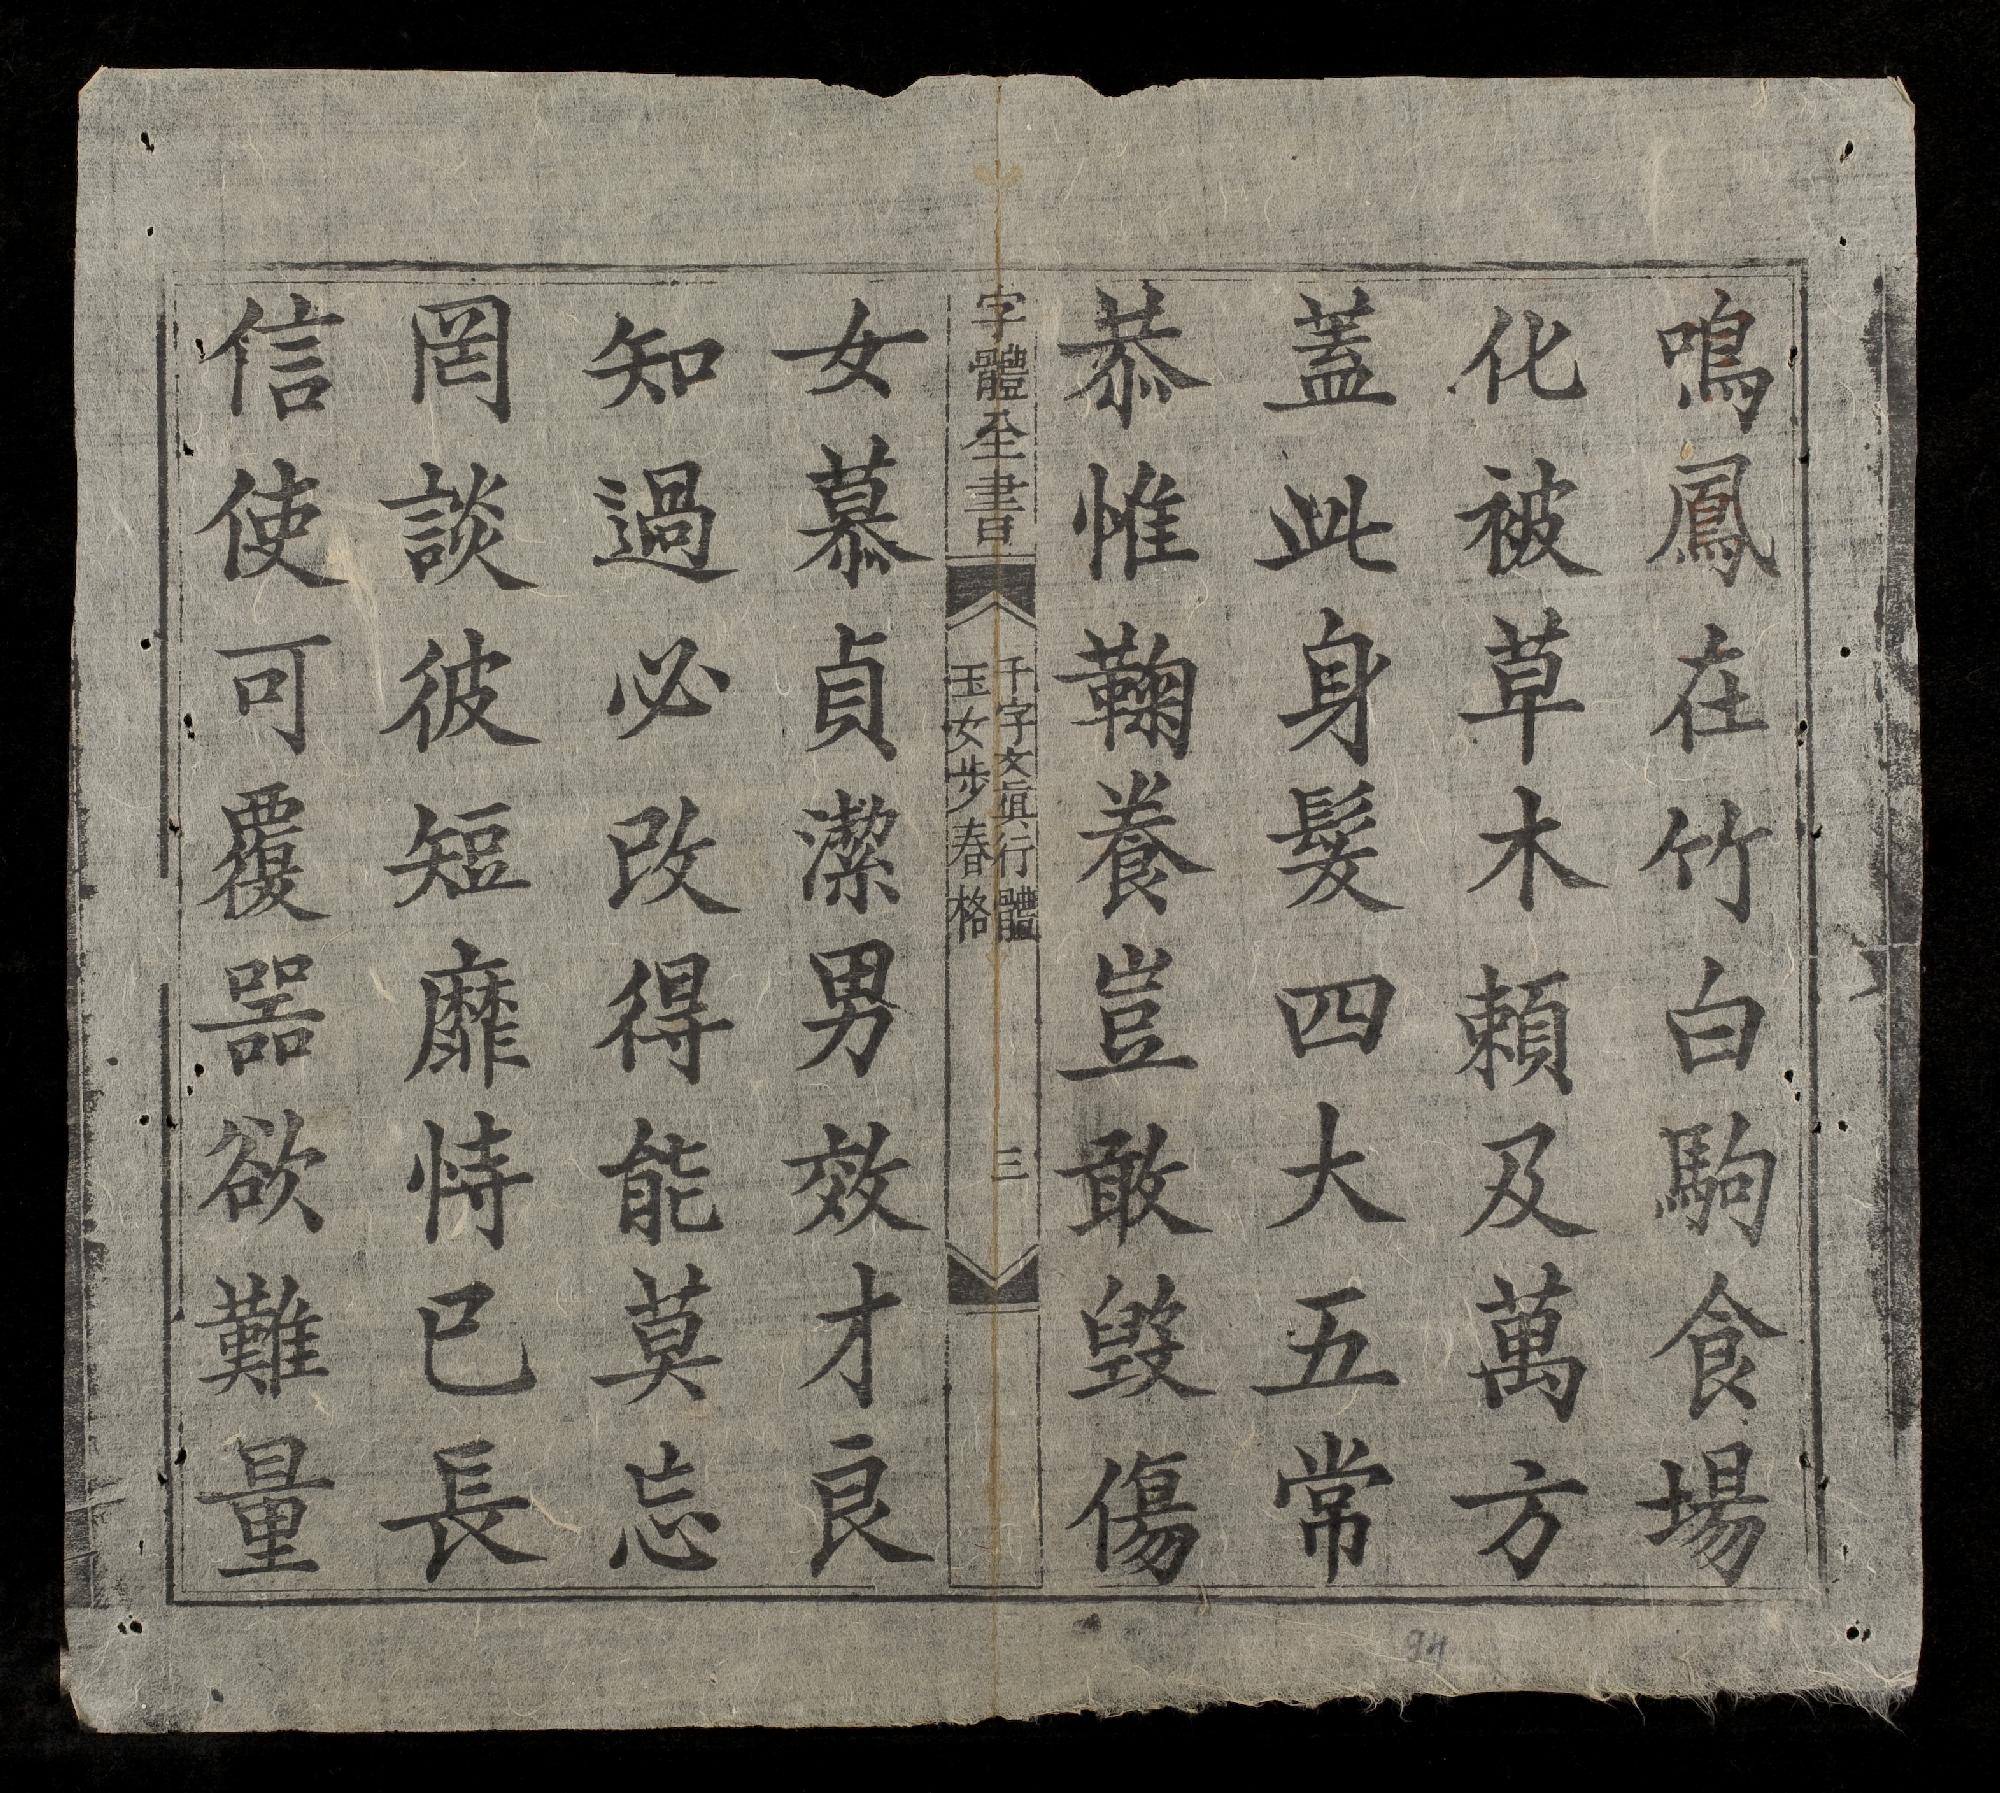 鳴鳳在竹白駒食場
化被草木賴及萬方
蓋此身髮四大五常
恭惟鞠養豈敢毀傷
字體全書
千字文眞行體
玉女步春格
三
女慕貞潔男效才良
知過必改得能莫忘
罔談彼短靡恃已長
信使可覆器欲難量
94